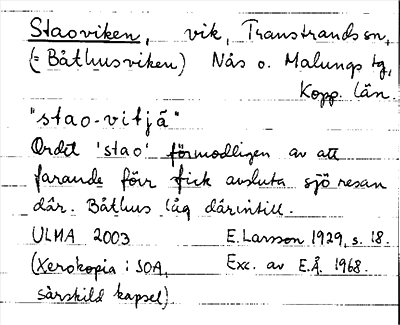 Staoviken, vik, Transtrands sn,
(= Båthusviken) Nås o. Malungs tg,
Kopp. län.
"stao-vitjä"
Ordet 'stao' förmodligen av att
farande förr fick avsluta sjöresan
där. Båthus låg därintill.
ULMA 2003 E. Larsson 1929, s. 18.
(Xerokopia i SOA, Exc. av E.Å. 1968.
särskild kapsel)